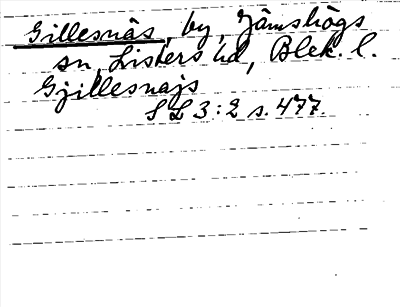 Gillesnäs, by, Jämshögs
sn, Listers hd, Blek. l.
Gjillesnajs
S L 3:2 s. 477.